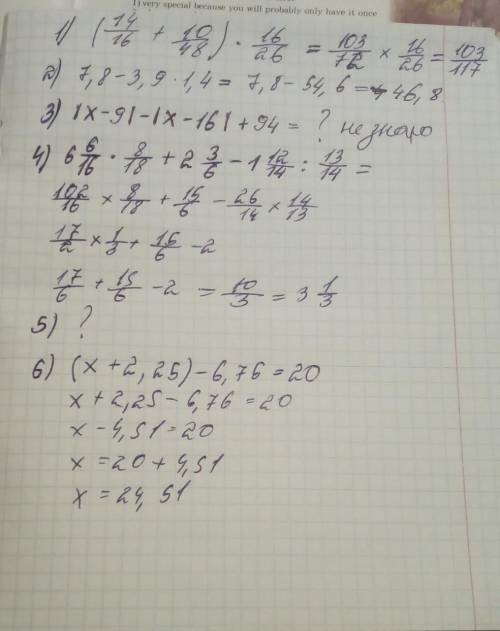 1) very special because you will probably only have it once
1) (14/16 + 10/48) · 16/26 = 103/72 × 16/26 = 103/117
2) 7,8-3,9·1,4= 7,8-54,6=-46,8
3) |x-9|-|x-16|+94= ? не знаю
4) 6 6/16 · 8/18 + 2 3/6 - 1 12/14 : 13/14 =
102/16 × 8/18 + 15/6 - 26/14 × 14/13
17/2 × 1/3 + 15/6 - 2
17/6 + 15/6 - 2 = 10/3 = 3 1/3
5) ?
6) (x+2,25)-6,76=20
x+2,25-6,76=20
x-4,51=20
x=20+4,51
x=24,51